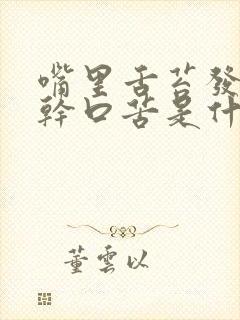 嘴里舌苔發
幹口苦是什
董雲以